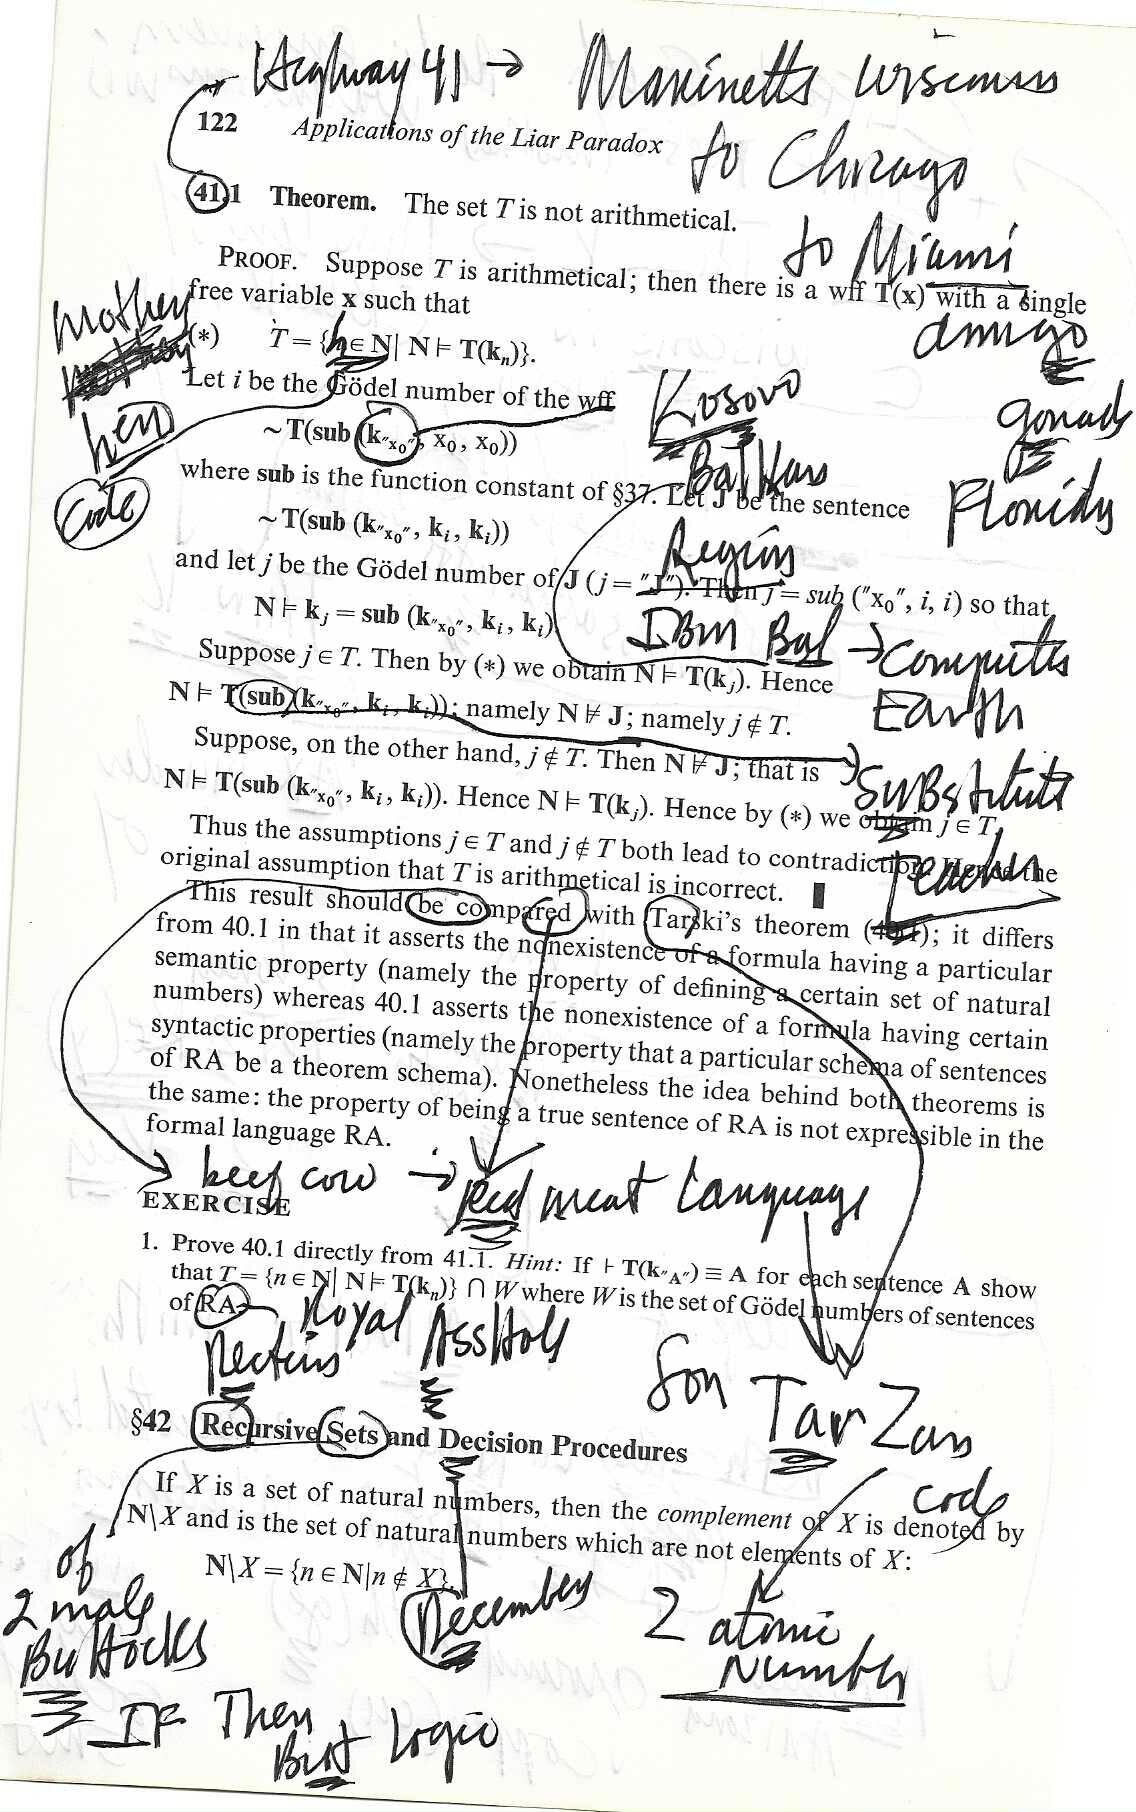 Highway 41 → Marinette Wisconsin
122 Applications of the Liar Paradox
to Chicago
41.1 Theorem. The set T is not arithmetical.
to Miami
PROOF. Suppose T is arithmetical; then there is a wff T(x) with a single
free variable x such that
mother
amigo
(*) T = {n ∈ N| N ⊨ T(kₙ)}.
Let i be the Gödel number of the wff
Kosovo
gonads
hen
~T(sub (k″x₀″, x₀, x₀))
Balkans
where sub is the function constant of §37. Let J be the sentence
Code
Florida
~T(sub (k″x₀″, kᵢ, kᵢ))
Region
and let j be the Gödel number of J (j = ″J″). Then j = sub (″x₀″, i, i) so that
N ⊨ kⱼ = sub (k″x₀″, kᵢ, kᵢ)
IBM Bal → Computer
Suppose j ∈ T. Then by (*) we obtain N ⊨ T(kⱼ). Hence
Earth
N ⊨ T(sub (k″x₀″, kᵢ, kᵢ)); namely N ⊭ J; namely j ∉ T.
Suppose, on the other hand, j ∉ T. Then N ⊭ J; that is
Substitute
N ⊨ T(sub (k″x₀″, kᵢ, kᵢ)). Hence N ⊨ T(kⱼ). Hence by (*) we obtain j ∈ T.
Thus the assumptions j ∈ T and j ∉ T both lead to contradiction. Hence the
Teacher
original assumption that T is arithmetical is incorrect. ▮
This result should be compared with Tarski's theorem (40.1); it differs
from 40.1 in that it asserts the nonexistence of a formula having a particular
semantic property (namely the property of defining a certain set of natural
numbers) whereas 40.1 asserts the nonexistence of a formula having certain
syntactic properties (namely the property that a particular schema of sentences
of RA be a theorem schema). Nonetheless the idea behind both theorems is
the same: the property of being a true sentence of RA is not expressible in the
formal language RA.
beef cow → Red meat Language
EXERCISE
1. Prove 40.1 directly from 41.1. Hint: If ⊦ T(k″A″) ≡ A for each sentence A show
that T = {n ∈ N| N ⊨ T(kₙ)} ∩ W where W is the set of Gödel numbers of sentences
of RA
Royal Asshole
Rectums
Son TarZan
§42 Recursive Sets and Decision Procedures
code
If X is a set of natural numbers, then the complement of X is denoted by
N\X and is the set of natural numbers which are not elements of X:
of
N\X = {n ∈ N|n ∉ X}.
2 male
Buttocks
December
2 atomic
Number
IF Then
But Logic